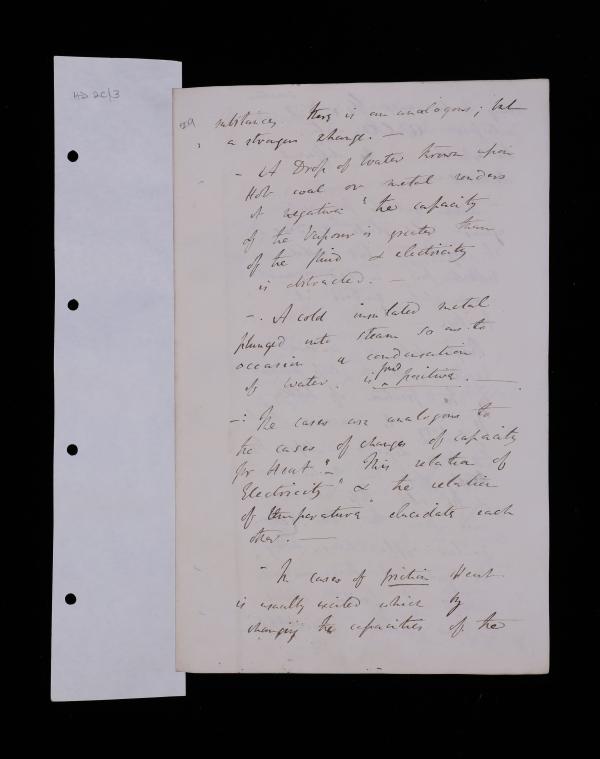 HD 2C/3
substances there is an analogous; but
a stronger change. —
- A Drop of Water thrown upon
Hot coal or metal renders
it negative "the capacity
of the Vapour is greater than
of the fluid & electricity
is abstracted. —
-. A cold insulated metal
plunged into steam so as to
occasion a condensation
of water. is found positive. —
-: The cases are analogous to
the cases of changes of capacity
for Heat "- This relation of
Electricity" & the relation
of temperature" elucidate each
other. —
- In cases of friction Heat
is usually excited which by
changing the capacities of the